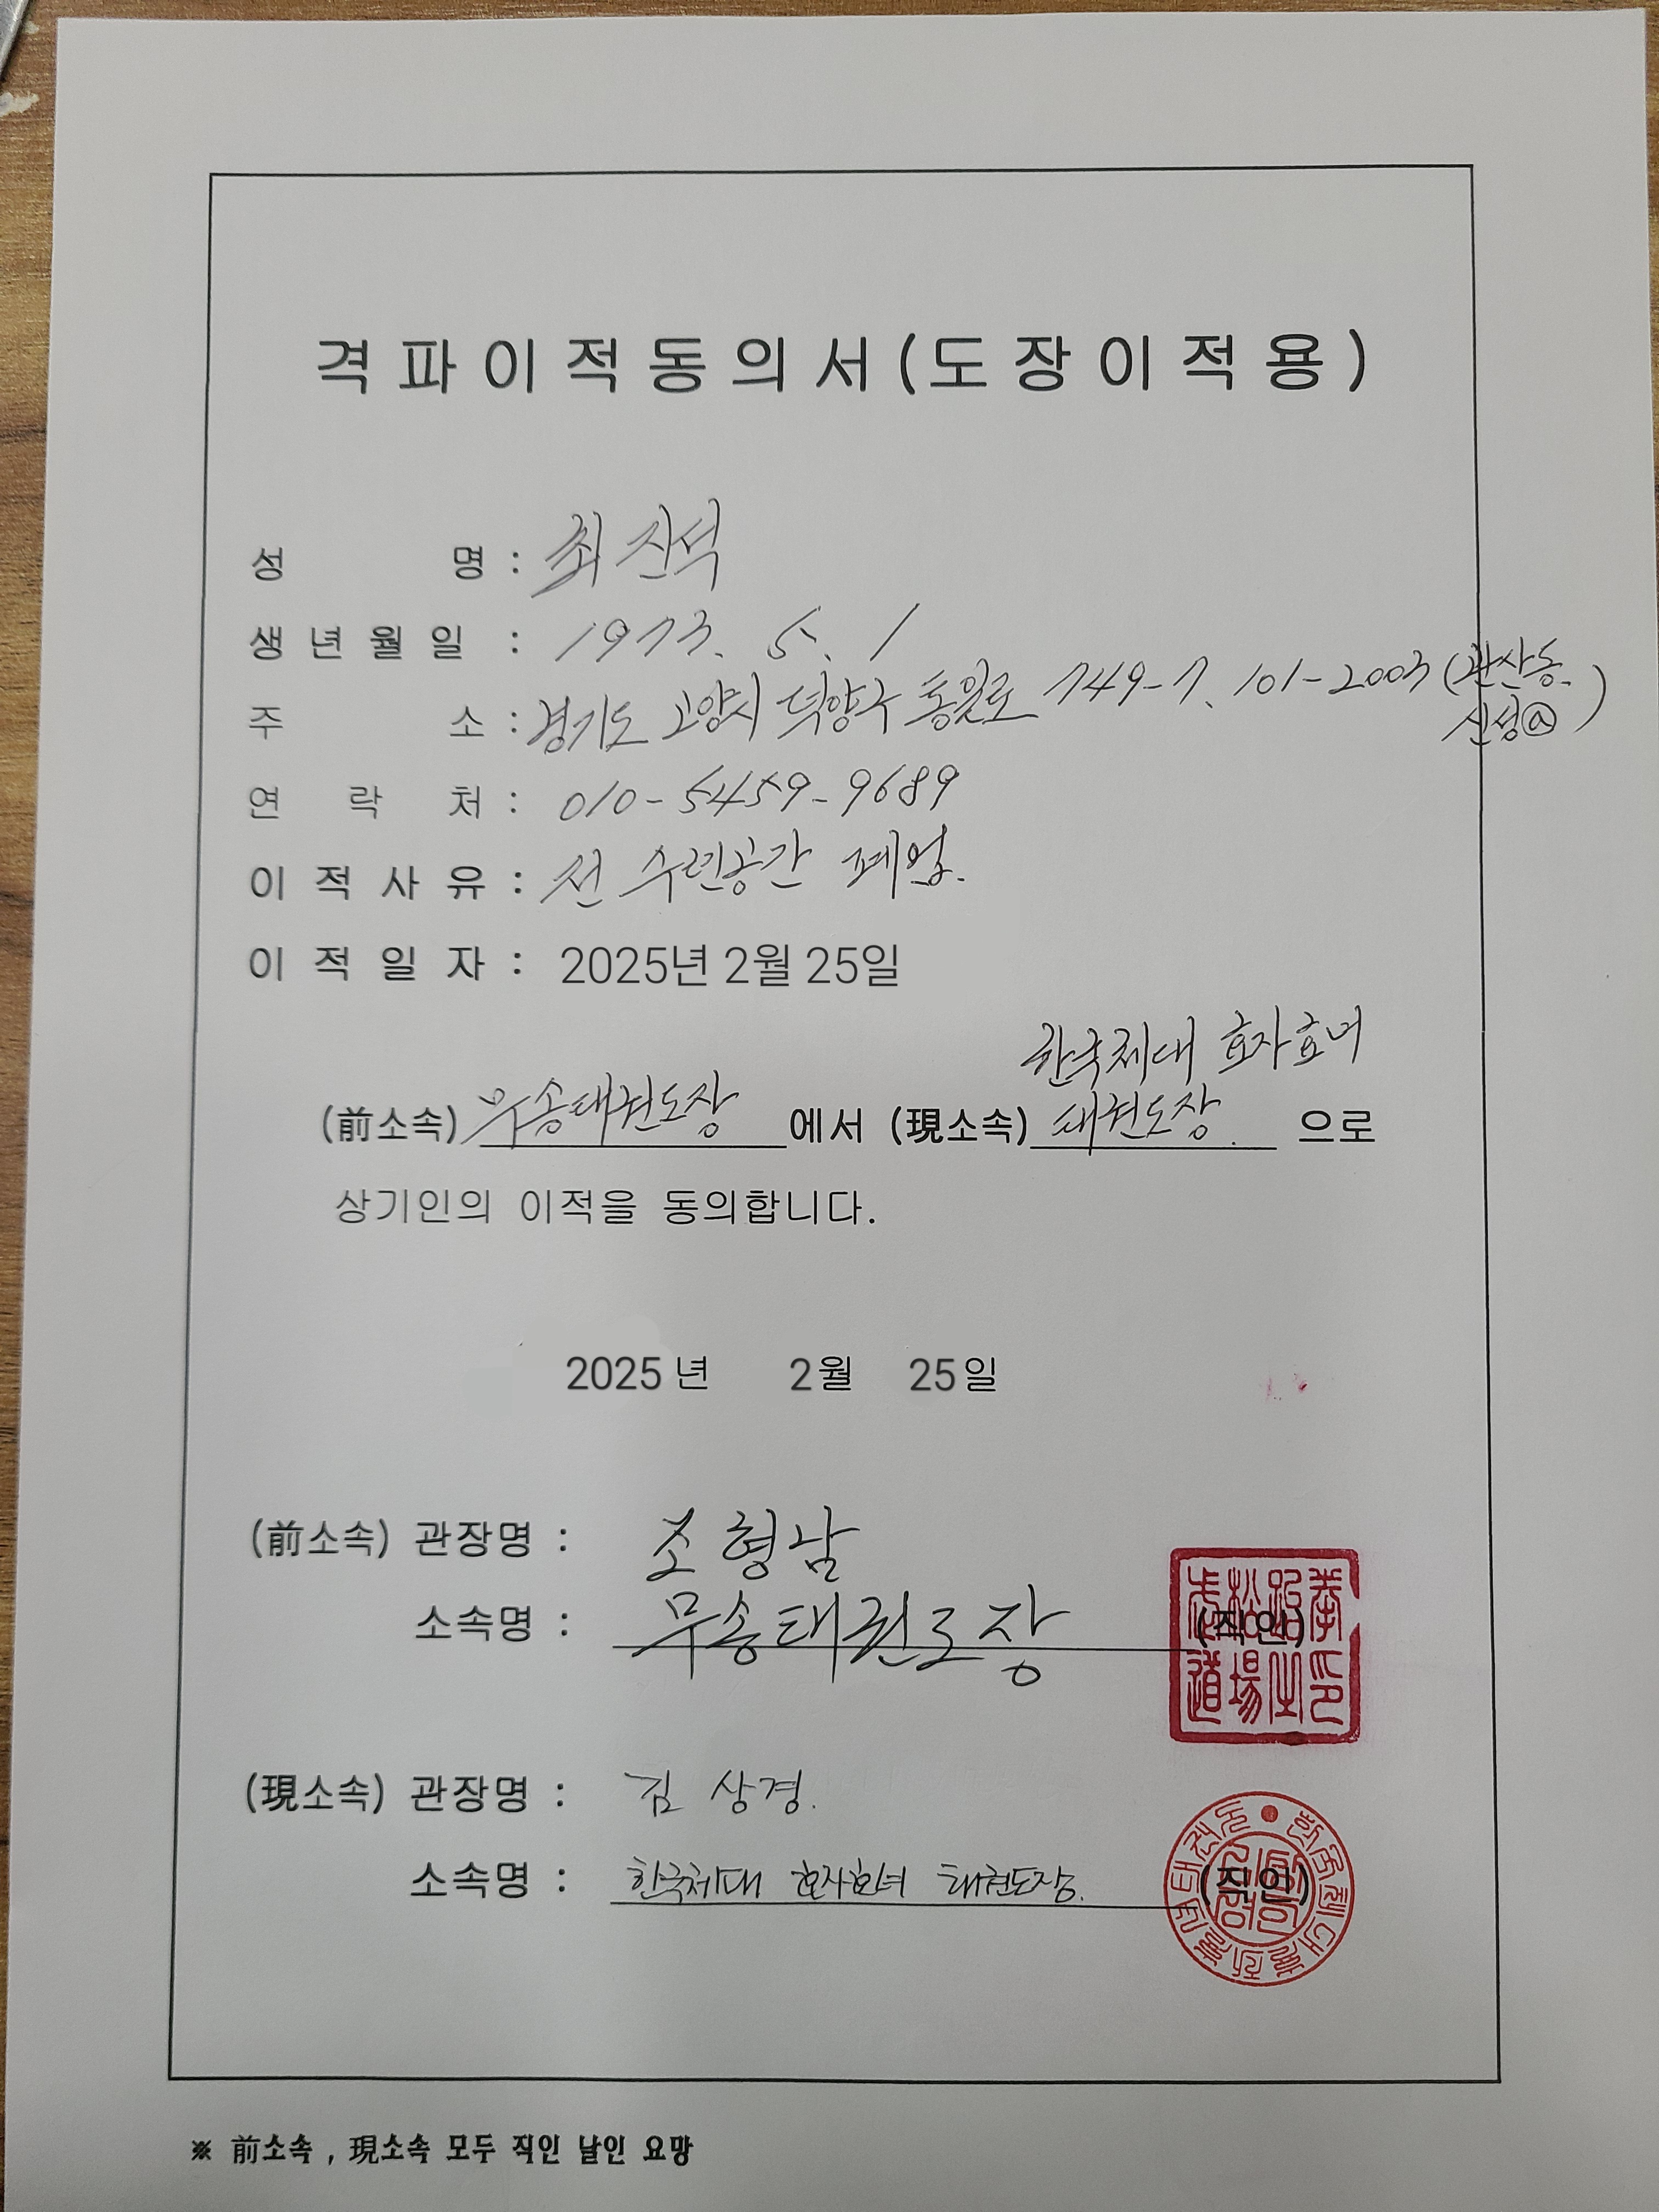 격파이적동의서(도장이적용)
성 명 : 최진석
생년월일 : 1973. 5. 1
주 소 : 경기도 고양시 덕양구 통일로 749-7. 101-2003 (관산동.
신성ⓐ)
연 락 처 : 010-5459-9689
이적사유 : 전 수련공간 폐업.
이적일자 : 2025년 2월 25일
한국체대 효자효녀
(前소속) 무송태권도장 에서 (現소속) 태권도장. 으로
상기인의 이적을 동의합니다.
2025년 2월 25일
(前소속) 관장명 : 조형남
소속명 : 무송태권도장 (직인)
(現소속) 관장명 : 김상경.
소속명 : 한국체대 효자효녀 태권도장. (직인)
※ 前소속 , 現소속 모두 직인 날인 요망